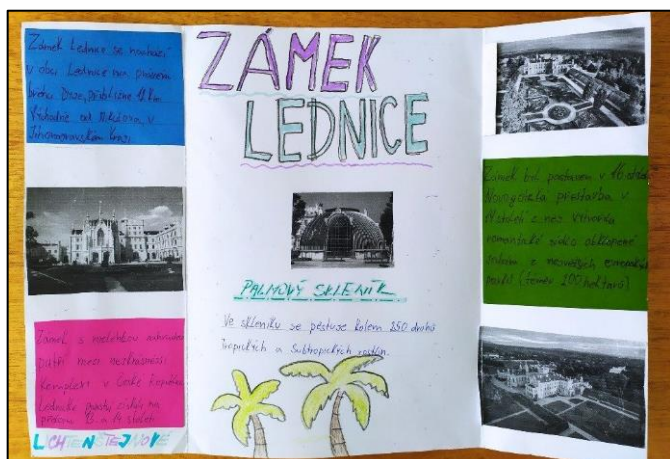 Zámek Lednice se nachází
v obci Lednice na pravém
břehu Dyje, přibližně 12 km
Východně od Mikulova, v
Jihomoravském kraji.
Zámek s rozlehlou zahradou
patří mezi nejkrásnější
komplexy v České Republice.
Lednické panství získali na
přelomu 13. a 14. století
LICHTENŠTEJNOVÉ
ZÁMEK
LEDNICE
PALMOVÝ SKLENÍK
Ve skleníku se pěstuje kolem 250 druhů
Tropických a Subtropických rostlin.
Zámek byl postaven v 16 století
Novogotická přestavba v
19 století z něj vytvořila
romantické sídlo obklopené
jedním z největších evropských
parků (téměř 200 hektarů)